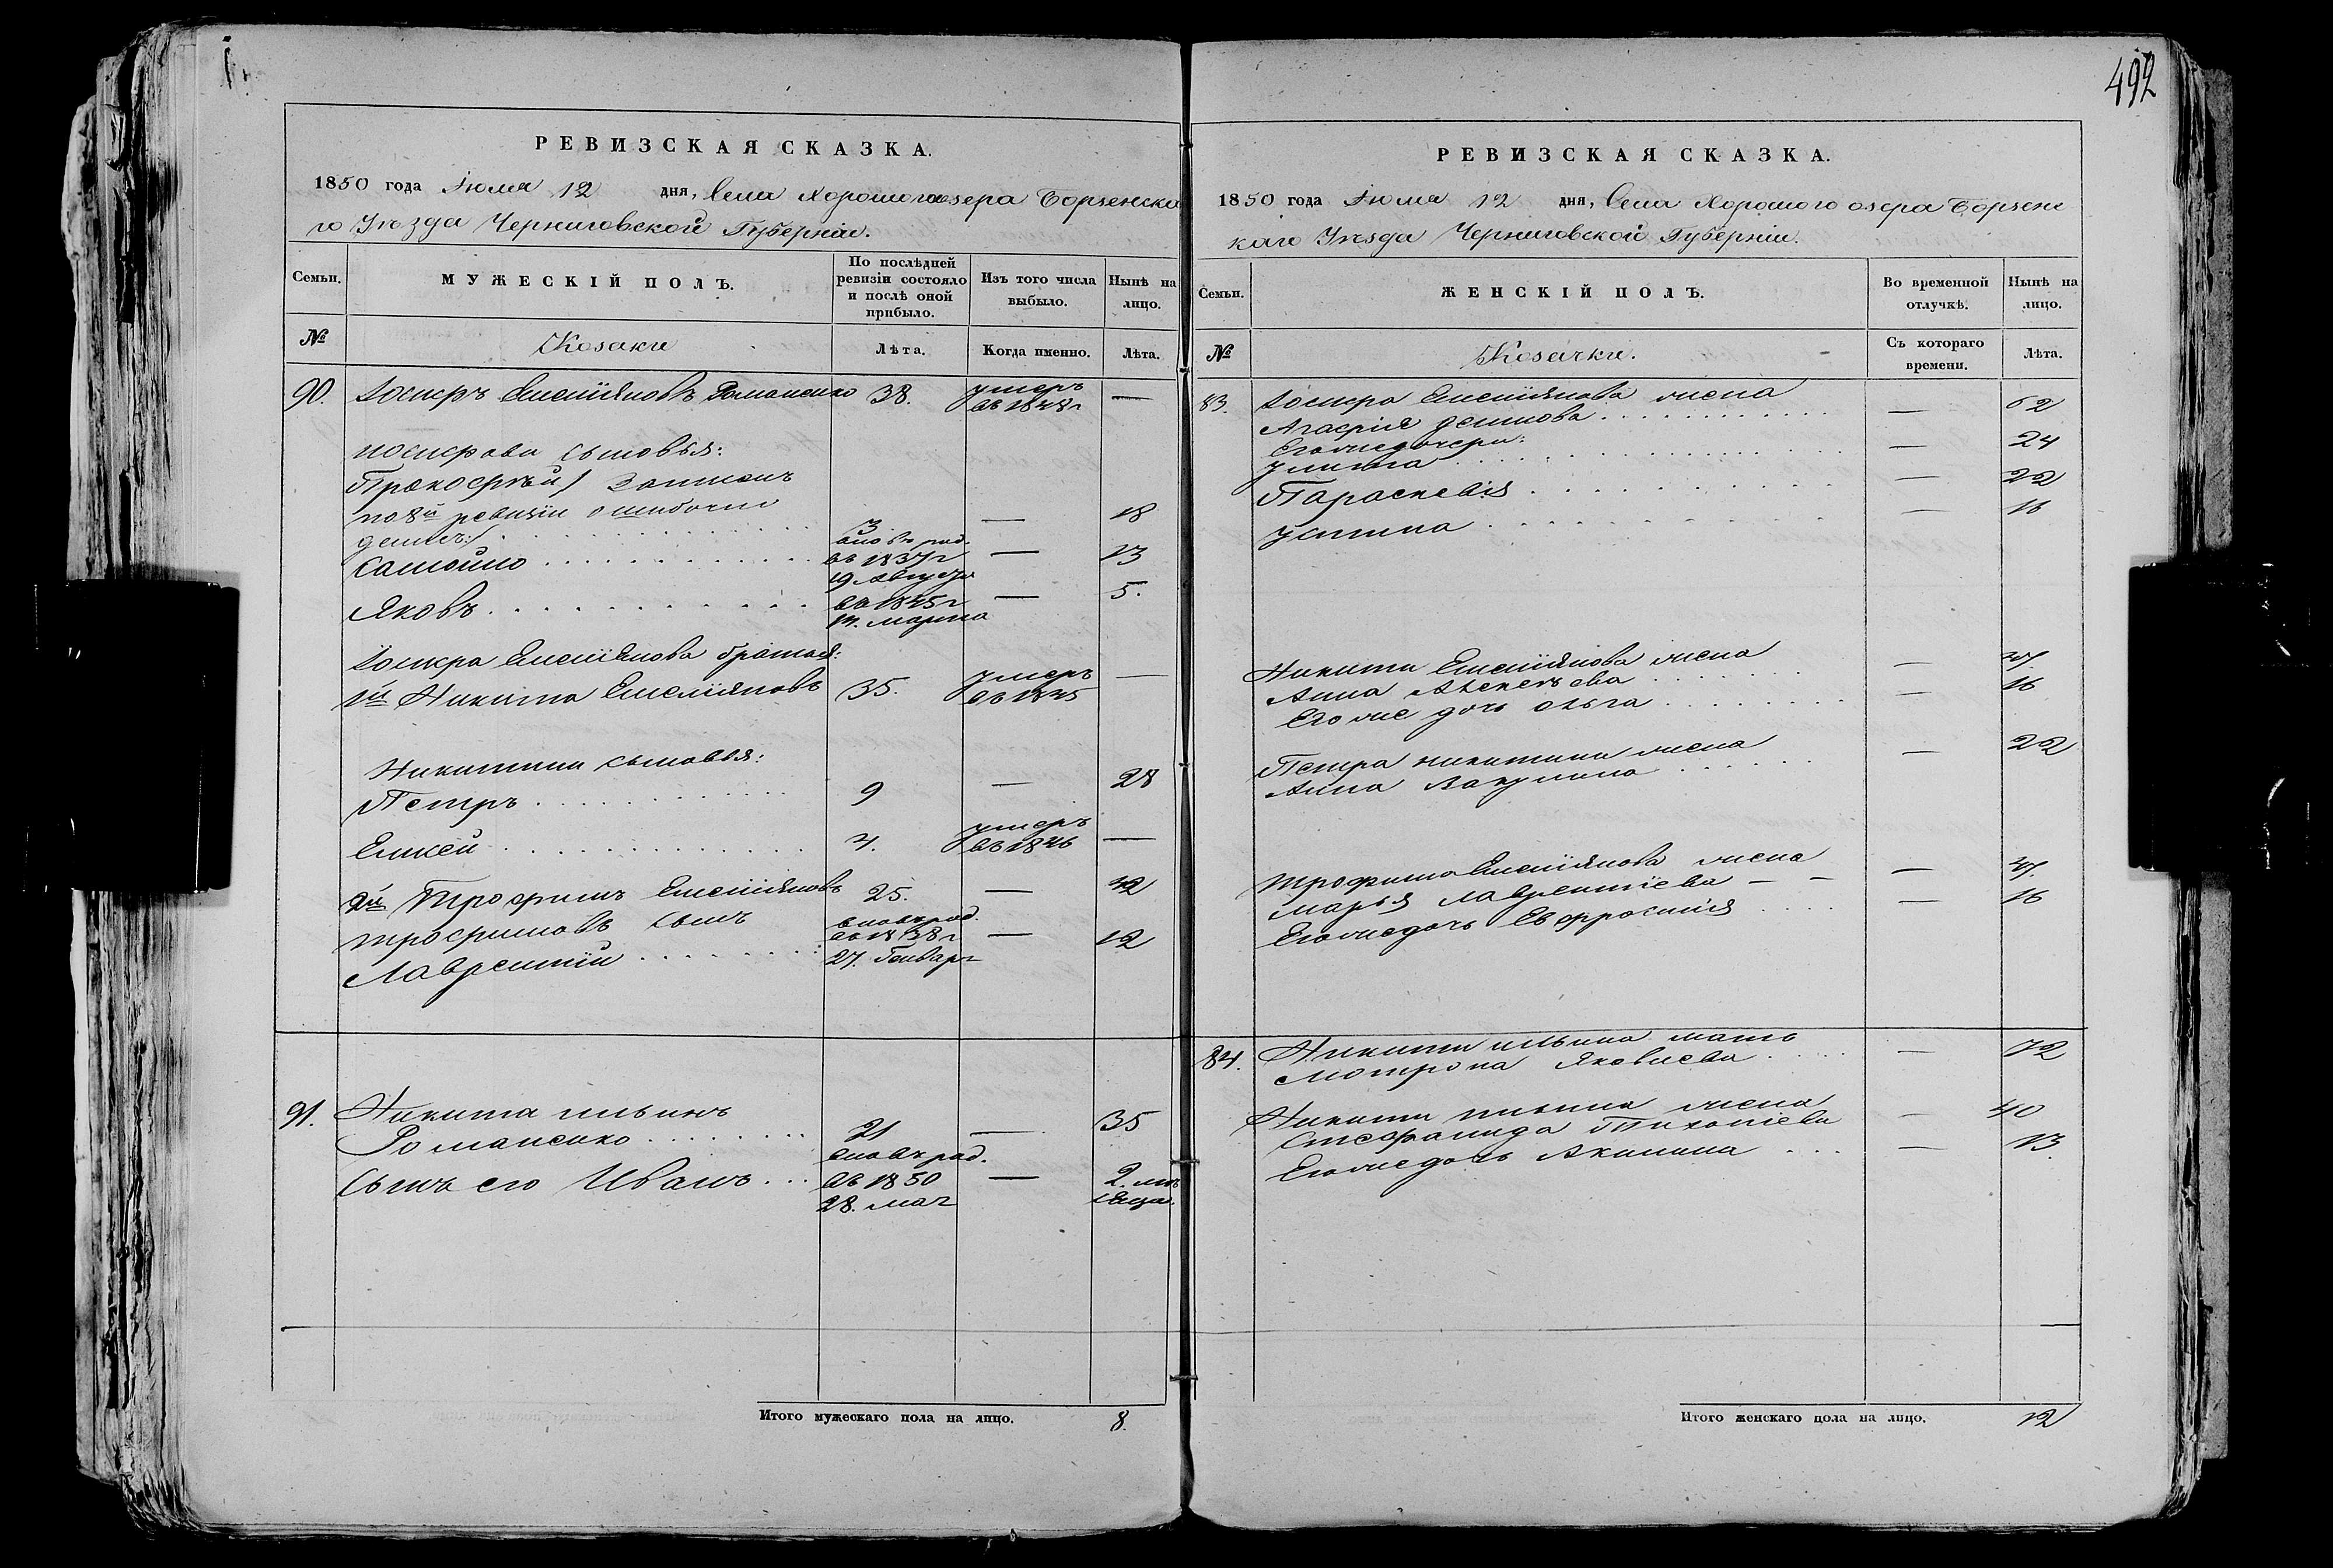 492
РЕВИЗСКАЯ СКАЗКА.
1850 года Іюля 12 дня, Села Хорошогоозера Борзенска
го Уѣзда Черниговской Губерніи.
Семьи.
МУЖЕСКІЙ ПОЛЪ.
По послѣдней
ревизіи состояло
и послѣ оной
прибыло.
Изъ того числа
выбыло.
Нынѣ на
лицо.
№
Козаки
Лѣта.
Когда именно.
Лѣта.
90. Емеліяновъ Романенко 38. умеръ —
въ 1848 г
сыновья:
Прокофѣй / Записанъ
по 8й ревизіи ошибочно
3 — 18
вновь род.
Самойло въ 1837 г — 13
19 Августа
Яковъ въ 1845 г — 5.
Марта
Емеліянова братья:
1й Никита Емеліяновъ 35. умеръ —
въ 1845
Никитины сыновья:
Петръ 9 — 28
умеръ
Елисей 4. въ 1846 —
2й Трофимъ Емеліяновъ 25. — 42
вновь род.
Трофимовъ сынъ въ 1838 г — 12
Лаврентій 27. Генваря
91. Никита Ильинъ
Романенко 21 — 35
вновь род.
Сынъ его Иванъ въ 1850 — 2. мѣ
28. Мая сяца.
Итого мужескаго пола на лицо. 8.
РЕВИЗСКАЯ СКАЗКА.
1850 года Іюля 12 дня, Села Хорошого озера Борзенс
каго Уѣзда Черниговской Губерніи.
Семьи.
ЖЕНСКІЙ ПОЛЪ.
Во временной
отлучкѣ.
Нынѣ на
лицо.
№
Козачки.
Съ котораго
времени.
Лѣта.
83. Емеліянова жена
Агафія — 52
Его же дочери:
Улита — 24
Параскевія — 22
Устина — 16
Никиты Емеліянова жена
Анна Алексѣева — 47.
Его же дочь Ольга — 16
Петра Никитина жена
Анна — 22
Трофима Емеліянова жена
Марья Лаврентіева — 47.
Его же дочь Евфросинія — 16
84. Никиты Ильина мать
Мотрона Яковлева — 72
Никиты Ильина жена
Стефанида — 40
Его же дочь Акилина — 13.
Итого женскаго пола на лицо. 12